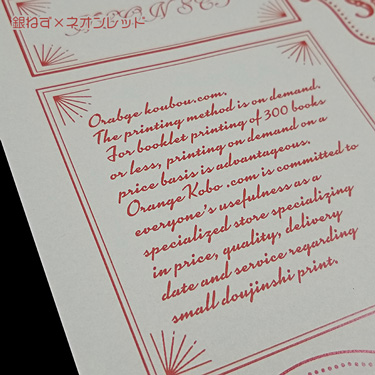 銀ねず×ネオンレッド
Orabge koubou.com.
The printing method is on demand.
For booklet printing of 300 books
or less, printing on demand on a
price basis is advantageous.
Orange Kobo .com is committed to
everyone's usefulness as a
specialized store specializing
in price, quality, delivery
date and service regarding
small doujinshi print.